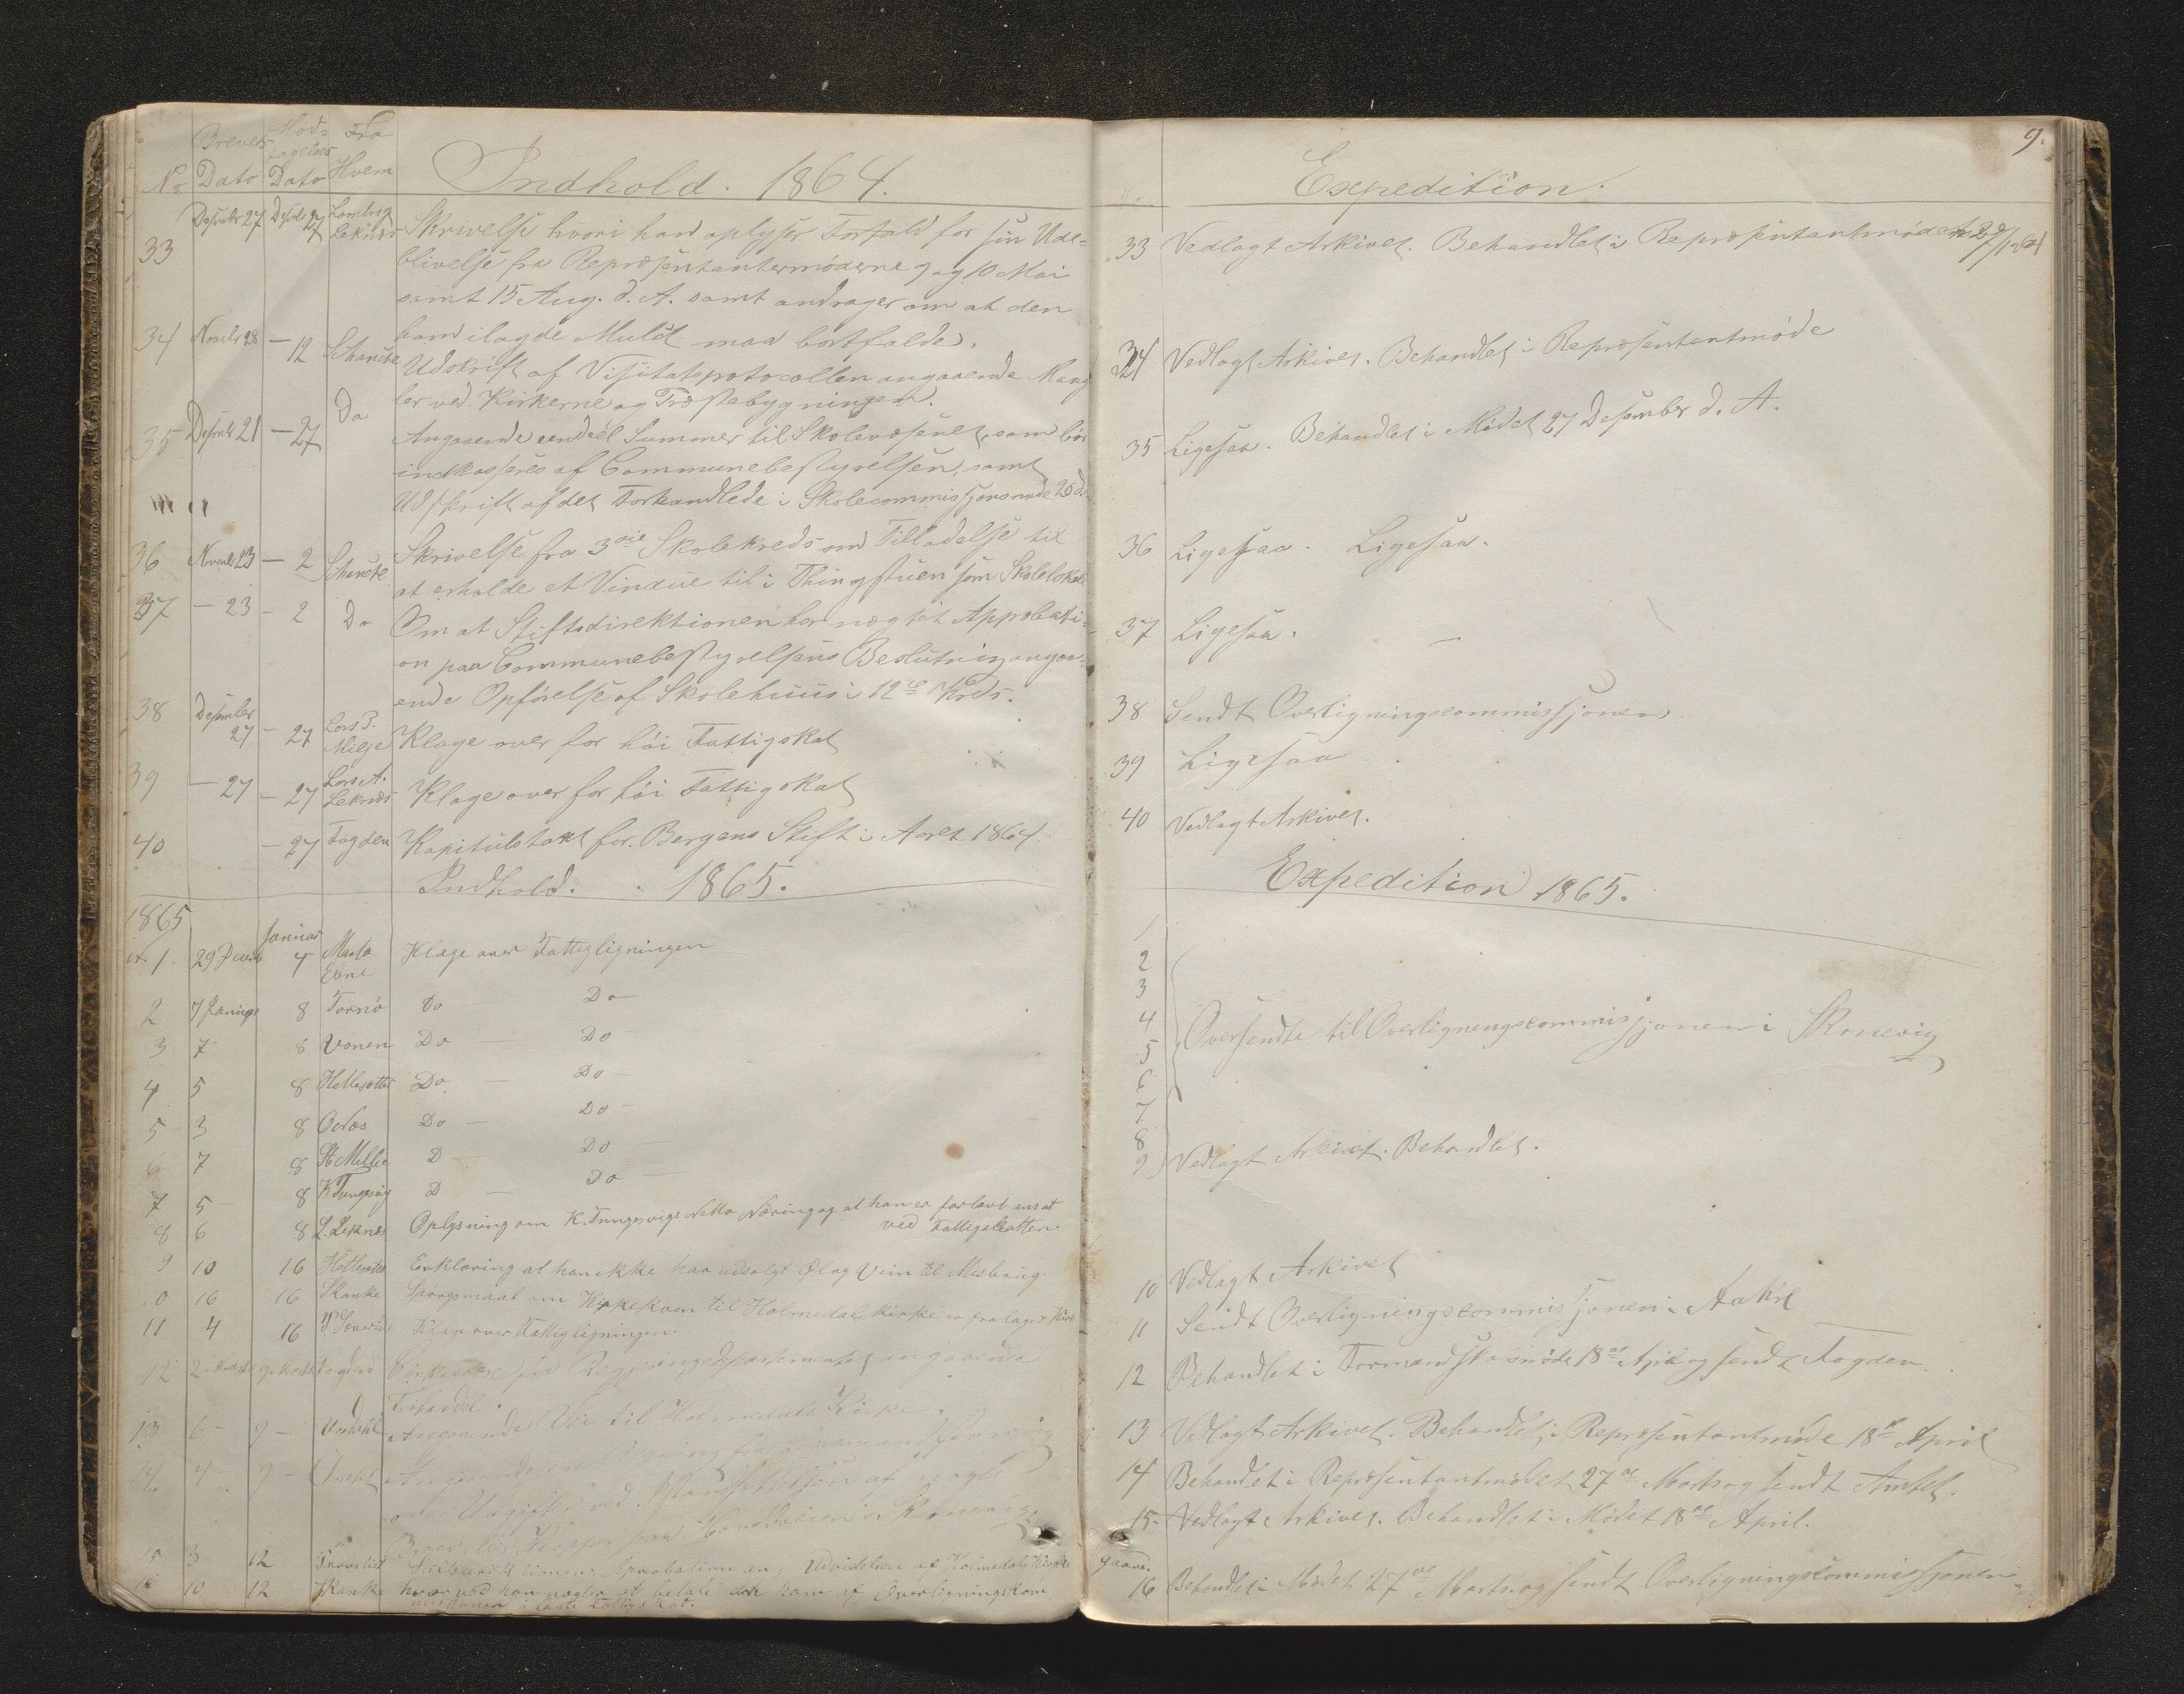 No Brevets Dato Mod-tagelses Dato Fra Hvem Indhold. 1864.
33 Desember 27 Desbr 27 Lambregt Leknæs Skrivelse hvori han oplyser Forfald for sin Ude-
blivelse fra Repræsentantermøderne 9 og 10 Mai
samt 15 Aug. d. A. samt andrager om at den
ham ilagde Mulct maa bortfalde.
34 Novbr 28 — 12 Schancke Udskrift af Visitatsprotocollen angaaende Mang
ler ved Kirkerne og Præstebygningen.
35 Desember 21 — 27 Do Angaaende eendeel Summer til Skolevæsenet, som bør
indkasseres af Communebestyrelsen, samt
Udskrift af det Forhandlede i Skolecommissjonsmøde 20 d.
36 Novembr 23 — 2 Schancke Skrivelse fra 3die Skolekreds om Tilladelse til
at erholde et Vindue til i Thingstuen som Skolelokale
37 — 23 — 2 Do Om at Stiftsdirektionen har nægtet Approbati-
on paa Communebestyrelsens Beslutning angaa-
ende Opførelse af Skolehuus i 12te Kreds.
38 Desember 27 — 27 Lars P. Milje Klage over for høi Fattigskat
39 — 27 — 27 Lars A. Leknæs Klage over for høi Fattigskat
40 — 27 Fogden Kapitulstakst for Bergens Stift i Aaret 1864.
Indhold. 1865.
1865
1. 29 Januar 4 Ebne Klage over Fattigligningen
2 7 8 Tornø Do — Do —
3 7 8 Vonen Do — Do
4 5 8 Do — Do —
5 3 8 Do — Do —
6 7 8 D — Do —
7 5 8 K Tungesvig D — Do —
8 6 8 L. Leknæs Oplysning om K. Tungesvigs Netto Næring og at han er forlavt ansat
ved Fattigskatten.
9 10 16 Erklæring at han ikke har udsolgt Øl og Viin til Misbrug.
10 16 16 Skanke Spørgsmaal om Kirkekoen til Holmedals Kirke er fra taget
11 4 16 Klage over Fattigligningen.
12 2 Marts 9 Marts Fogden Cirkulære fra Regjeringsdepartementet angaaende
13 6 — 9 — Angaaende til Holmedals Kirke.
14 4 — 9 — Amtet Angaaende en Regning fra Lensmand
over Udgifter ved af nogle
paa i Skonevig.
15 3 12 Provstiet Stiftsdirektionens Aprobation ang Udvidelsen af Holmedals Kirke
16 10 12 Skanke hvor ved han nægter at betale den ham af Overligningskom
missionen Fattigskat.
9.
Expedition.
33 Vedlagt Arkivet. Behandlet i Repræsentantmødet 27/12 64
34 Vedlagt Arkivet. Behandlet i Repræsentantmøde
35 Ligesaa. Behandlet i Mødet 27 Desember d. A.
36 Ligesaa. Ligesaa.
37 Ligesaa.
38 Sendt Overligningscommissjonen
39 Ligesaa
40 Vedlagt Arkivet.
Expedition 1865.
1
2
3
4
5 Oversendte til Overligningscommissjonen i Skonevig
6
7
8
9 Vedlagt Arkivet. Behandlet.
10 Vedlagt Arkivet
11 Sendt Overligningscommissjonen i Aakre
12 Behandlet i Formandskabsmøde 18de April og sendt Fogden
13 Vedlagt Arkivet. Behandlet i Repræsentantmøde 18de April
14 Behandlet i Repræsentantmødet 27de Marts og sendt Amtet.
15 Vedlagt Arkivet. Behandlet i Mødet 18de April.
16 Behandlet i Mødet 27de Marts og sendt Overligningscommissjonen